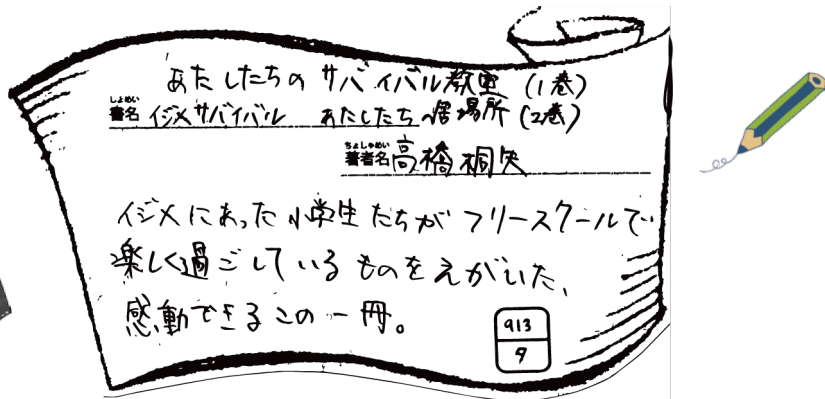 あたしたちの サバイバル教室 (1巻)
しょめい
書名 イジメサバイバル あたしたちの居場所 (2巻)
ちょしゃめい
著者名 高橋桐矢
イジメにあった小学生たちがフリースクールで
楽しく過ごしているものをえがいた、
感動できるこの一冊。
913
タ